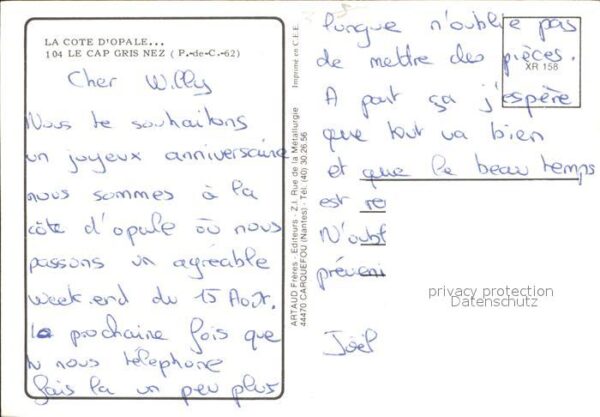 LA COTE D'OPALE...
104 LE CAP GRIS NEZ ( P.-de-C.-62)
Cher Willy
Nous te souhaitons
un joyeux anniversaire
nous sommes à la
côte d'opale où nous
passons un agréable
week.end du 15 Août.
la prochaine fois que
tu nous téléphone
fais la un peu plus
ARTAUD Frères - Editeurs - Z.I. Rue de la Métallurgie
44470 CARQUEFOU (Nantes) - Tél. (40) 30.26.56
Imprimé en C.E.E.
longue n'oublie pas
de mettre des pièces.
XR 158
A part ça j'espère
que tout va bien
et que le beau temps
est re
N'oubl
préveni
privacy protection
Datenschutz
Joël